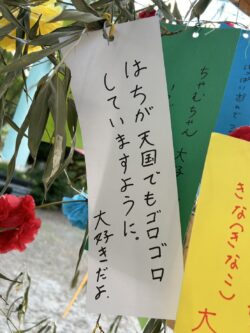 はちが天国でもゴロゴロ
していますように。
大好きだよ
ちゃむちゃん
大
きな(きなこ)
大